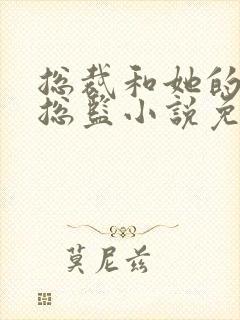 总裁和她的
总监小说免
莫尼兹